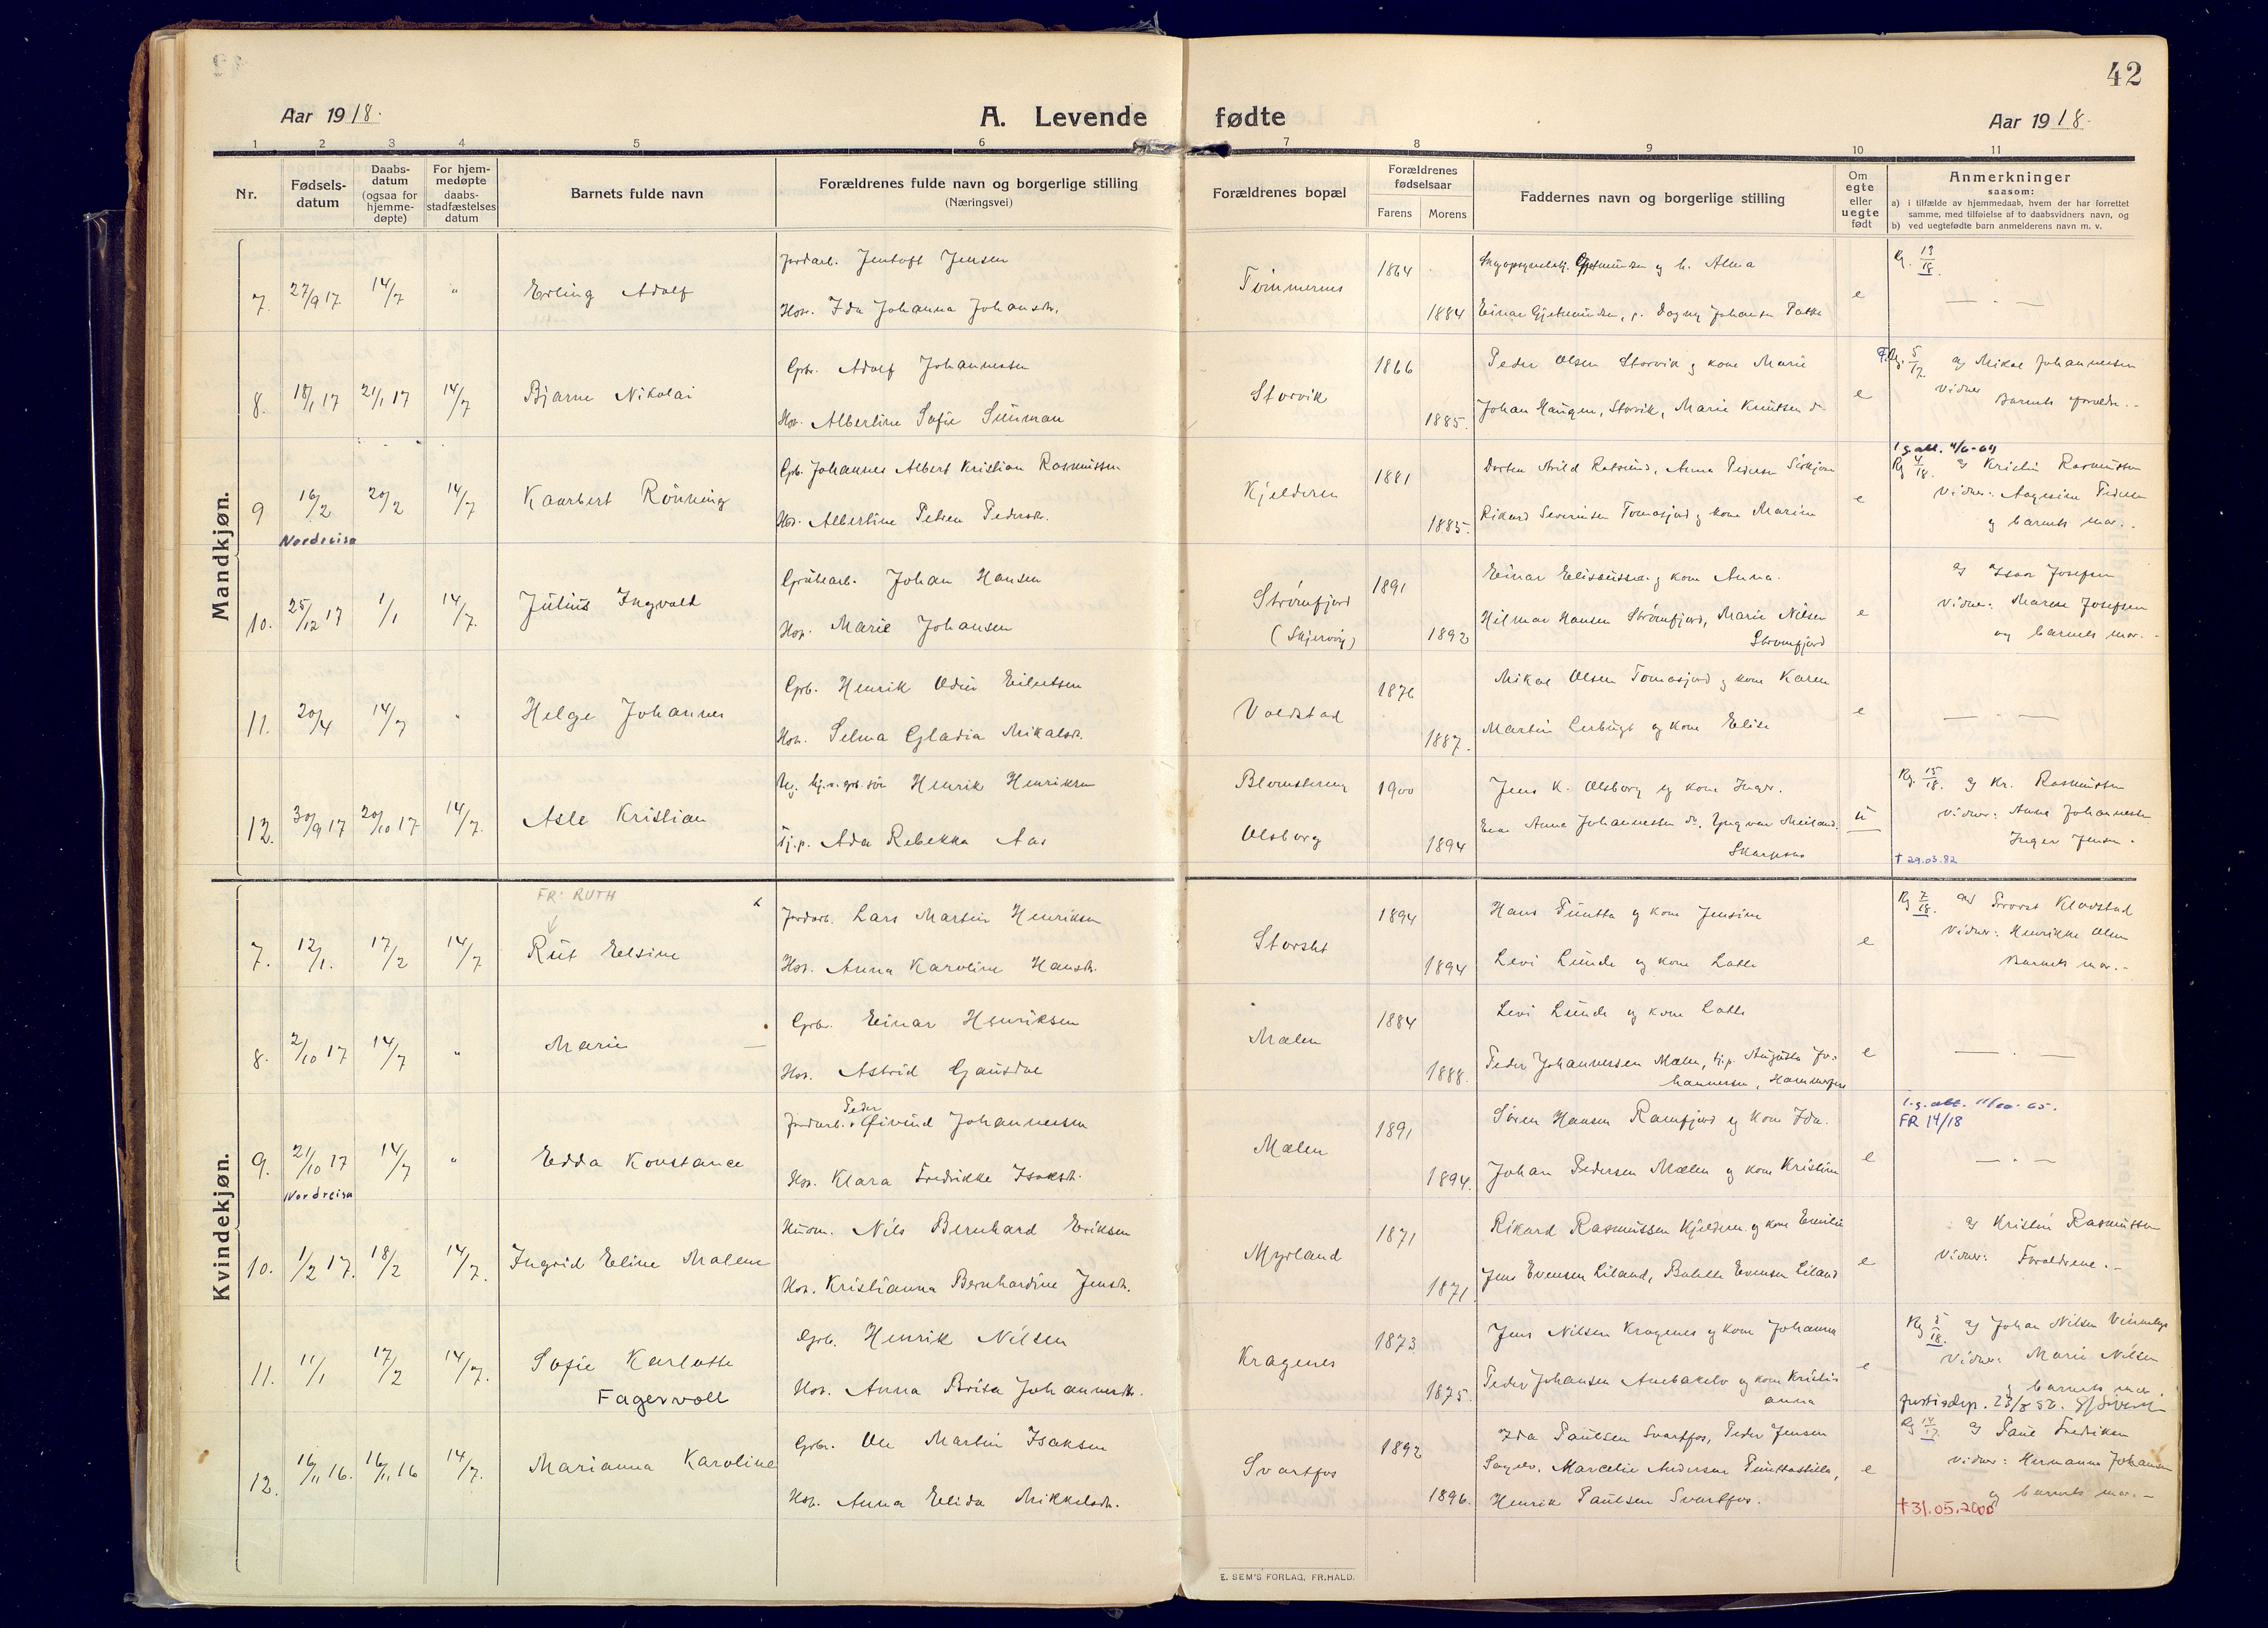 42
Aar 1918.
A. Levende
fødte
Aar 1918.
1 2 3 4 5 6 7 8 9 10 11
Nr.
Fødsels-
datum
Daabs-
datum
(ogsaa for
hjemme-
døpte)
For hjem-
medøpte
daabs-
stadfæstelses
datum
Barnets fulde navn
Forældrenes fulde navn og borgerlige stilling
(Næringsvei)
Forældrenes bopæl
Forældrenes
fødselsaar
Farens Morens
Faddernes navn og borgerlige stilling
Om
egte
eller
uegte
født
Anmerkninger
saasom:
a) i tilfælde av hjemmedaab, hvem der har forrettet
samme, med tilføielse af to daabsvidners navn, og
b) ved uegtefødte barn anmelderens navn m. v.
Mandkjøn.
7. 27/9 17 14/7 " Erling Adolf
Jordarb. Jentoft Jensen
Hos. Ida Johanna Johansdr.
Tømmernes 1864
1884
og h. Alma
Einar Dagny Johansen
e
8. 18/1 17 21/1 17 14/7 Bjarne Nikolai
Gbr. Adolf Johannessen
Hos. Albertine Sofie
Storvik 1866
1885.
Peder Olsen Storvik og kone Marie
Johan Haugen, Storvik, Marie Knutsen
e
5/17 Mikal Johannessen
Vidner
Barnets forældre.
9 16/2 20/2 14/7 Kaarbert Rønning
Nordreisa
Gb. Johannes Albert Kristian Rasmussen
Hos. Albertine Petrea Pedersdr.
Kjelderen 1881
1885.
Anna Pedersen
Rikard Severinsen Tomasjord og kone
e
l.g.att. 4/6-64
4/18. Kristin Rasmussen
Vidner: Pedersen
og barnets mor.
10. 25/12 17 1/1 14/7. Julius Ingvald
Johan Hansen
Hos. Marie Johansen
Strømfjord
(Skjervøy)
1891
1892
Einar og kone Anna.
Hilmar Hansen Strømfjord, Marie Nilsen
Strømfjord
e
Josefsen
Vidner: Josefsen
og barnets mor.
11. 20/4 14/7 " Helge Johannes
Gb. Henrik Odin Eilertsen
Hos. Selma Gladia Mikalsdr.
Voldstad 1876
1887.
Mikal Olsen Tomasjord og kone Karen
Martin og kone Elise
e
12. 30/9 17 20/10 17 14/7. Asle Kristian
Henrik Henriksen
Tj.p. Ada Rebekka Aas
Olsborg
1900
1894
Jens K. Olsborg og kone
Anna Johannessen
u
15/18. Kr. Rasmussen
Vidner: Anna Johannessen
Inger Jensen.
† 29.03.82
Kvindekjøn.
FR: RUTH
7. 12/1. 17/2 14/7 Rut Elsine
Jordarb. Lars Martin Henriksen
Hos. Anna Karoline Hansdr.
Storslet 1894
1894
Hans Puntta og kone Jensine
Levi Lunde og kone Lotte
e
7/18. Provst Klavstad
Vidner: Henrikke Olsen
Barnets mor.-
8. 2/10 17 14/7 " Marie
Gbr. Einar Henriksen
Hos. Astrid Gausdal
Mælen 1884
1888.
Levi Lunde og kone Lotte
Peder Johannessen Mælen, tj.p. Augusta Jo-
hannessen,
e
9. 21/10 17 14/7 " Edda Konstance
Nordreisa
Peder
Jordarb. Øivind Johannessen
Hos. Klara Fredrikke Isaksdr.
Mælen 1891
1894.
Søren Hansen Ramfjord og kone Ida.
Johan Pedersen Mælen og kone Kristine
e
l.g.att. 11/10-65.
FR 14/18
10. 1/2 17. 18/2 14/7. Ingrid Eline Malene
Husm. Nils Bernhard Eriksen
Hos. Kristianna Bernhardine Jensdr.
Myrland 1871
1871.
Rikard Rasmussen Kjelderen og kone Emilie
Jens Evensen Liland, Evensen Liland
e
Kristin Rasmussen
Vidner: Forældrene.-
11. 11/1 17/2 14/7. Sofie Karlotte
Fagervoll
Gb. Henrik Nilsen
Hos. Anna Brita Johannesdr.
Kragenes 1873
1875.
Jens Nilsen Kragenes og kone Johanna
Peder Johansen og kone Kristi-
anna
e
8/18. Johan Nilsen
Vidner: Marie Nilsen
og barnets mor.
Justisdep. 23/8 52.
12. 16/11 16. 16/11 16 14/7. Marianna Karoline
Gbr. Ole Martin Isaksen
Hos. Anna Elida Mikkelsdr.
Svartfos 1892
1896.
Ida Paulsen Svartfos, Peder Jensen
Marcelie Andersen
Henrik Paulsen Svartfos.
e
14/17 Paul Fredriksen
Vidner: Hermanna Johansen
og barnets mor.-
†31.05.2000
E. SEM'S FORLAG, FR.HALD.